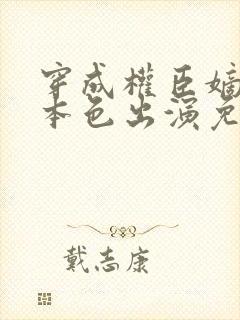 穿成權臣嫡
本色出演
戴志康